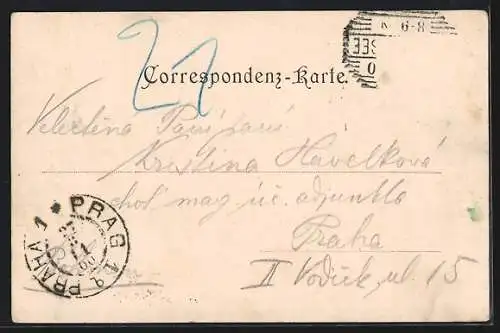 27
K 6-8
SEE
O
Correspondenz-Karte.
Velectěná Paní paní
Kristina Havelková
choť mag. úč. adjunkta
Praha
II Vodičk. ul. 15
PRAG 1 * PRAHA 1